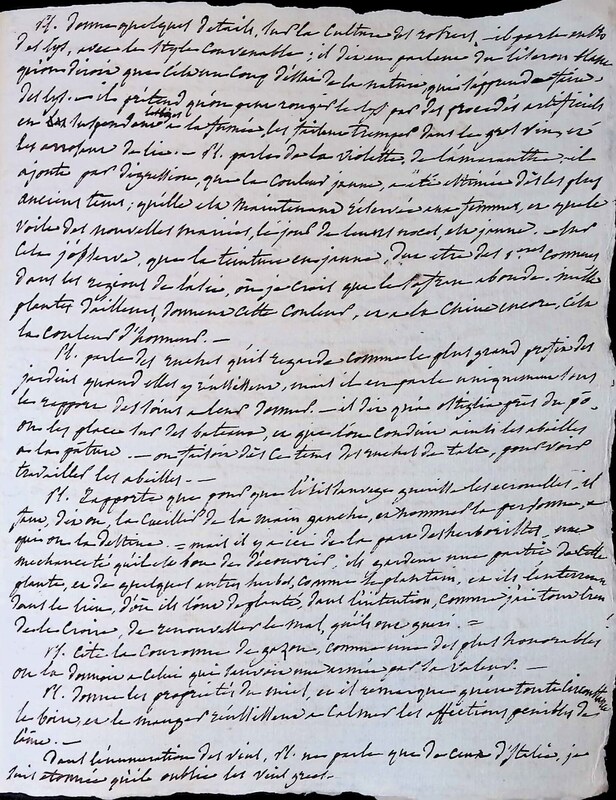 Pl. donne quelques details, sur la culture des rosiers, - il parle ensuite
des lys, avec le style convenable; il dit en parlant du liseron blanc
qu'on diroit que c'est un coup d'essai de la nature, qui s'apprend a faire
des lys. - il prétend qu'on peut rougir le lys par des procedés artificiels
en suspendant les tiges a la fumée, les faisant tremper dans le gros vin, et
les arrosant de lie. - Pl. parle de la violette, de l'amaranthe; il
ajoute par digression, que la couleur jaune, a été estimée dès les plus
anciens tems; qu'elle est maintenant réservée aux femmes, et que le
voile des nouvelles mariées, le jour de leurs noces, est jaune. - Sur
cela j'observe, que la teinture en jaune, dut etre des 1eres connues
dans les regions de l'asie, où je crois que le safran abonde. mille
plantes d'ailleurs, donnent cette couleur, et a la Chine encore, c'est
la couleur d'honneur. -
Pl. parle des ruches qu'il regarde comme le plus grand profit des
jardins quand elles y réussissent, mais il en parle uniquement sous
le rapport des soins a leur donner. - il dit qu'a ostiglia près du po
on les place sur des bateaux, et que l'on conduit ainsi les abeilles
a la pature. - on faisoit dès ce tems des ruches de talc, pour voir
travailler les abeilles. -
Pl. rapporte que pour que l' guerisse les ecrouelles, il
faut, dit on, la cueillir de la main gauche, en nommant la personne, a
qui on la destine. - mais il y a ici de la part des herboristes, une
mechanceté qu'il est bon de découvrir, ils gardent une partie de cette
plante, et de quelques autres herbes, comme le plantain, et ils l'enterrent
dans le lieu, d'où ils l'ont deplanté, dans l'intention, comme j'ai tout lieu
de le croire, de renouveller le mal, qu'ils ont gueri. -
Pl. cite la couronne de gazon, comme une des plus honorables
on la donnoit a celui qui sauvoit une armée par sa valeur. -
Pl. donne les proprietés du miel, et il remarque qu'en toute circonstance
le boire, et le manger réussissent a calmer les affections penibles de
l'âme. -
Dans l'énumeration des vins, Pl. ne parle que de ceux d'Italie, je
suis etonnée qu'il oublie les vins grecs. -